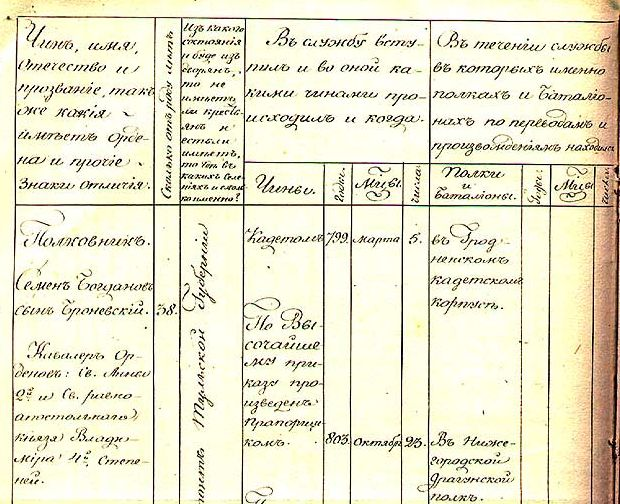 Чинъ, имя,
отечество и
прозваніе, так
же какія
имѣетъ орде
на и прочіе
знаки отличія.
Сколько отъ роду лѣтъ
Изъ какого
состоянія
и буде изъ
дворянъ,
то не
имѣетъ
ли кресть
янъ и
естьли
имѣетъ,
то
какихъ селе
ніяхъ и
колменно?
Въ службу всту
пилъ и во оной ка
кими чинами про
исходилъ и когда.
Въ теченіи службы
въ которыхъ именно
полкахъ и баталіо
нахъ по переводамъ и
произвожденіямъ находился
Чины.
Годы.
Мцы.
числа.
Полки
и
Баталіоны.
Годы.
Мцы.
Полковникъ.
Семенъ Богдановъ
сынъ Броневскій.
Кавалеръ Ор
деновъ: Св. Анны
2й и Св. равно
апостольнаго
князя Влади
міра 4й Степе
ней.
38.
Тульской Губерніи
Кадетомъ
799.
Марта
5.
въ Грод
ненскомъ
кадетскомъ
корпусѣ.
По Вы
сочайше
му при
казу про
изведенъ
Прапорщи
комъ.
803.
Октября
23.
Въ Ниже
городской
драгунской
полкъ.